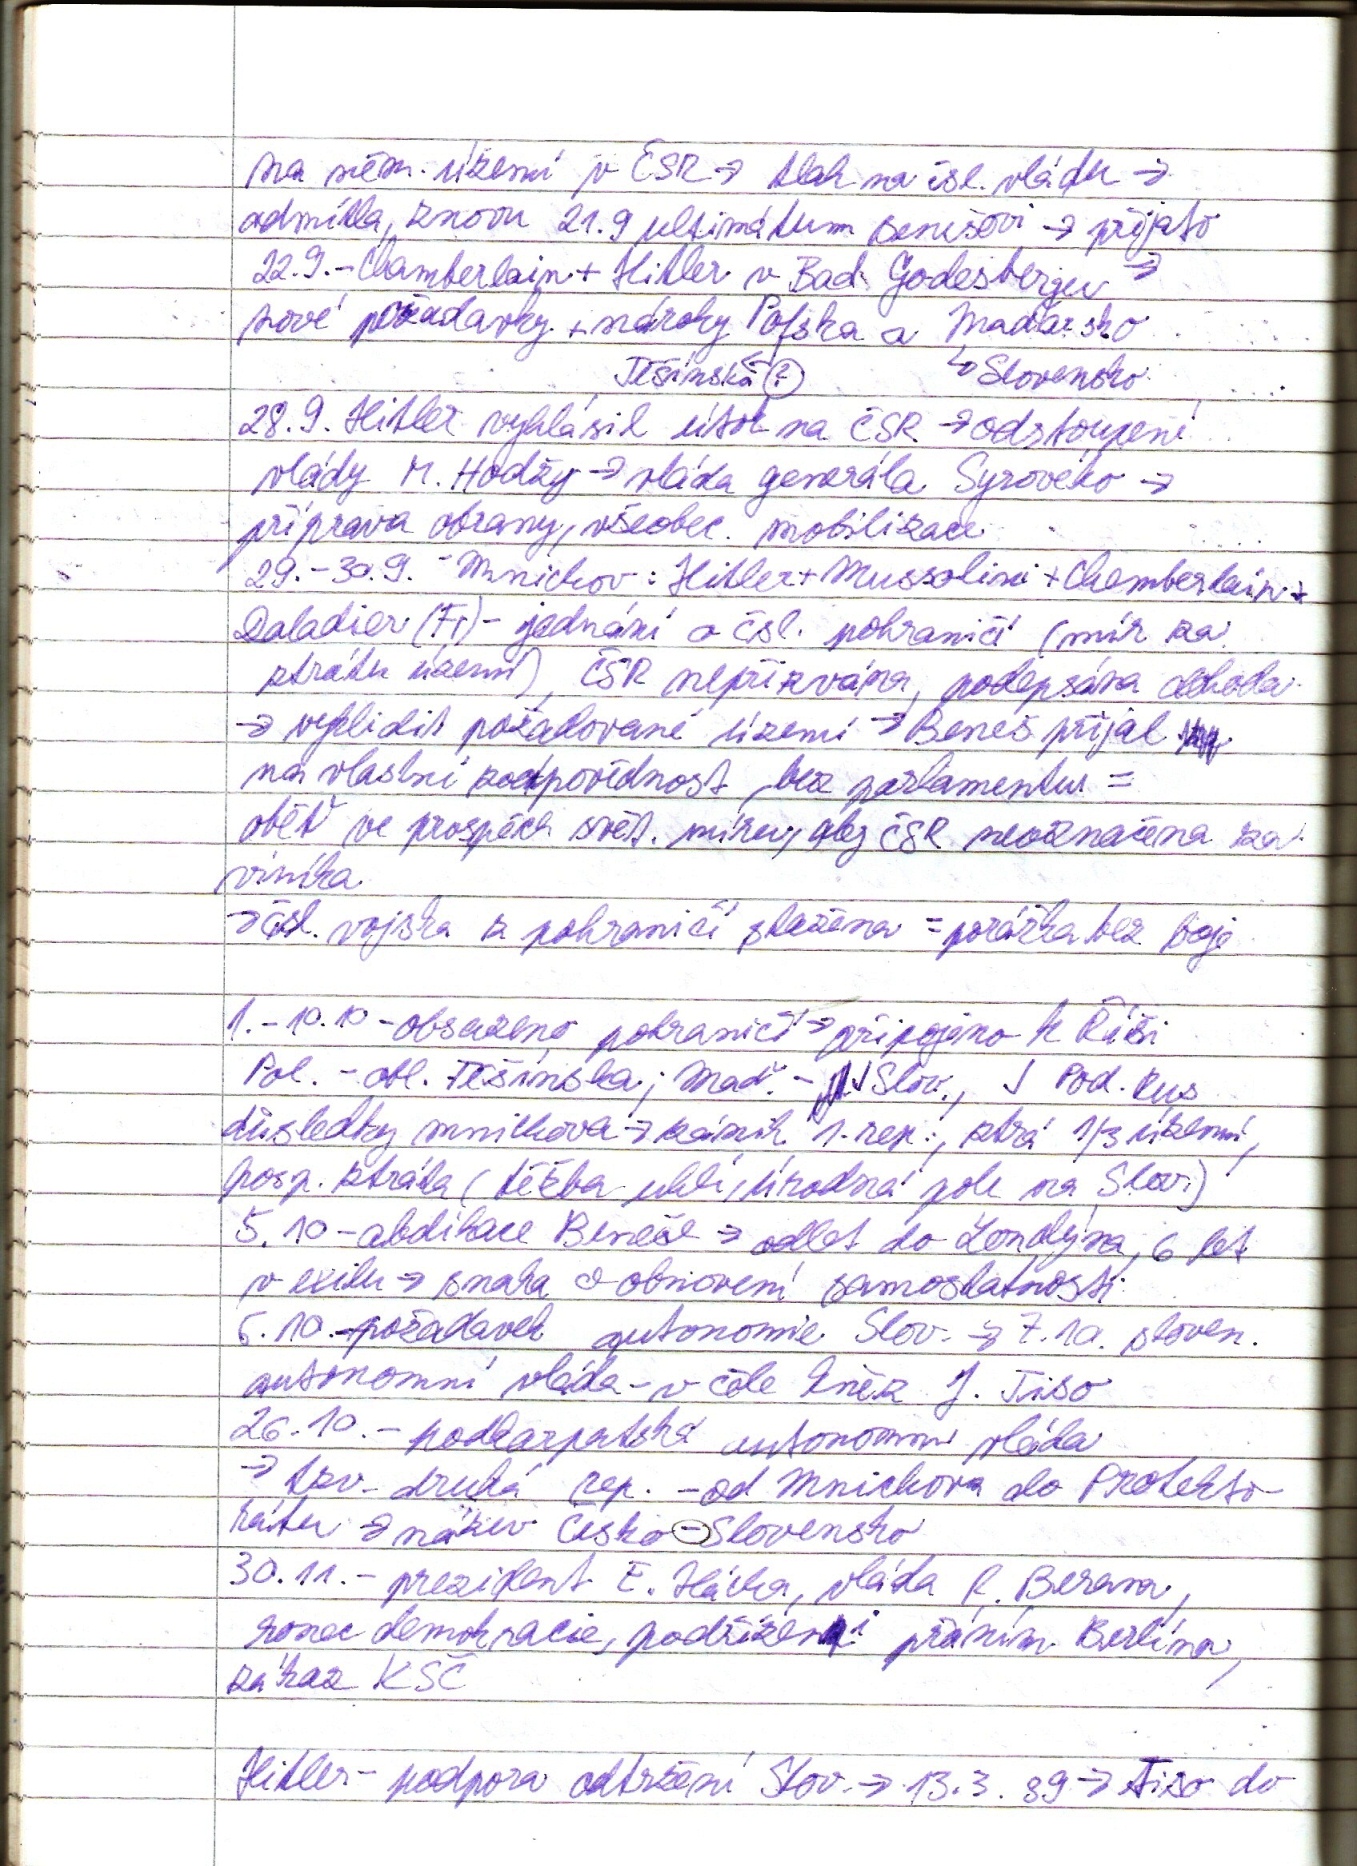 na něm. území v ČSR → tlak na čsl. vládu →
odmítla, znovu 21.9 ultimátum Benešovi → přijato
22.9. - Chamberlain + Hitler v Bad Godesbergu →
nové požadavky + nároky Polska a Maďarsko
Těšínska ↳ Slovensko
28.9. Hitler vyhlásil útok na ČSR → odstoupení
vlády M. Hodžy → vláda generála Syrového →
příprava obrany, všeobec. mobilizace
29. - 30.9. - Mnichov: Hitler + Mussolini + Chamberlain +
Daladier (Fr) - jednání o čsl. pohraničí (mír za
ztrátu území), ČSR nepřizvána, podepsána dohoda
→ vyklidit požadované území → Beneš přijal
na vlastní zodpovědnost, bez parlamentu =
oběť ve prospěch svět. míru, aby ČSR neoznačena za
viníka
→ čsl. vojska z pohraničí stažena = porážka bez boje
1. - 10.10 - obsazeno pohraničí → připojeno k Říši
Pol. - obl. Těšínska; Maď. - J Slov., J Pod. Rus
důsledky mnichova → zánik 1. rep., ztrá 1/3 území,
hosp. ztráta (těžba uhlí, úrodná pole na Slov.)
5.10 - abdikace Beneše → odlet do Londýna, 6 let
v exilu → snaha o obnovení samostatnosti
6.10. - požadavek autonomie Slov. → 7.10. sloven.
autonomní vláda - v čele kněz J. Tiso
26.10. - podkarpatská autonomní vláda
→ tzv. druhá rep. - od Mnichova do Protekto-
rátu → název Česko-Slovensko
30.11. - prezident E. Hácha, vláda R. Berana,
konec demokracie, podřízení přáním Berlína,
zákaz KSČ
Hitler - podpora odtržení Slov. → 13.3.39 → Tiso do